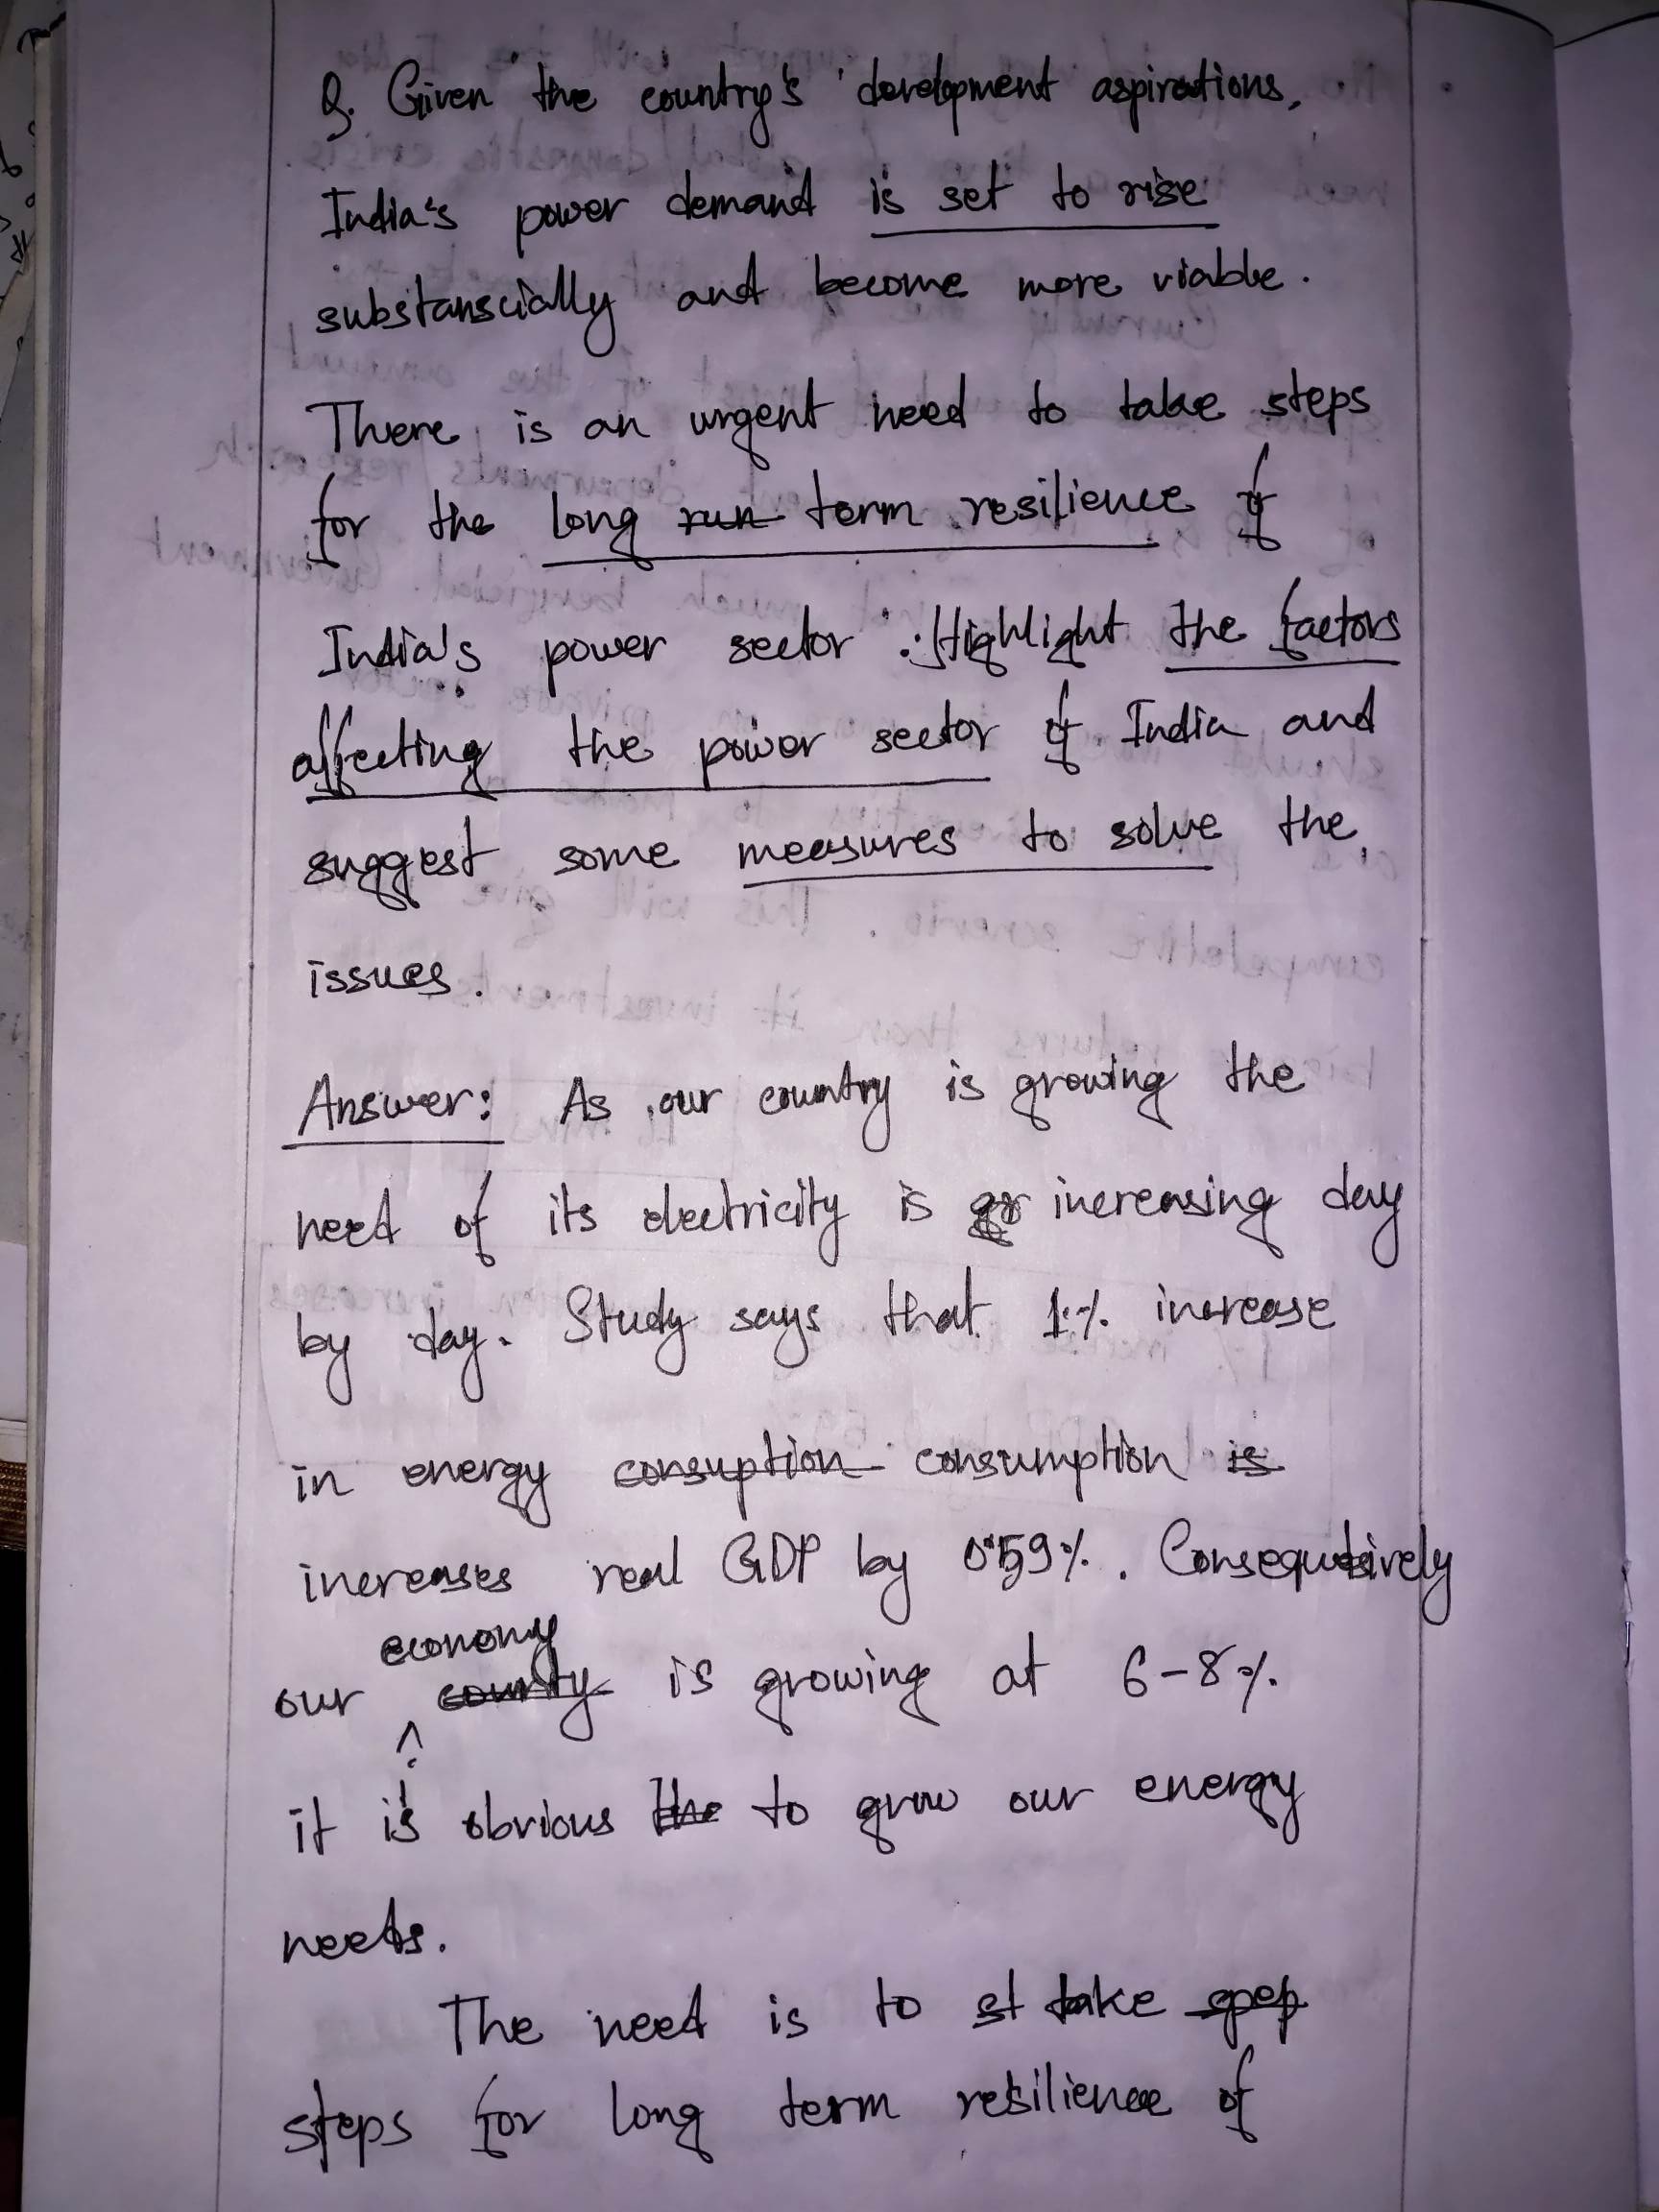 Q. Given the country's development aspirations,
India's power demand is set to rise
substanscially and become more viable.
There is an urgent need to take steps
for the long run term resilience of
India's power sector. Highlight the factors
affecting the power sector of India and
suggest some measures to solve the
issues.
Answer: As our country is growing the
need of its electricity is gr increasing day
by day. Study says that 1% increase
in energy consuption consumption is
increases real GDP by 0.59%. Consequetively
economy
our county is growing at 6-8%
it is obvious the to grow our energy
needs.
The need is to st take spep
steps for long term resilience of